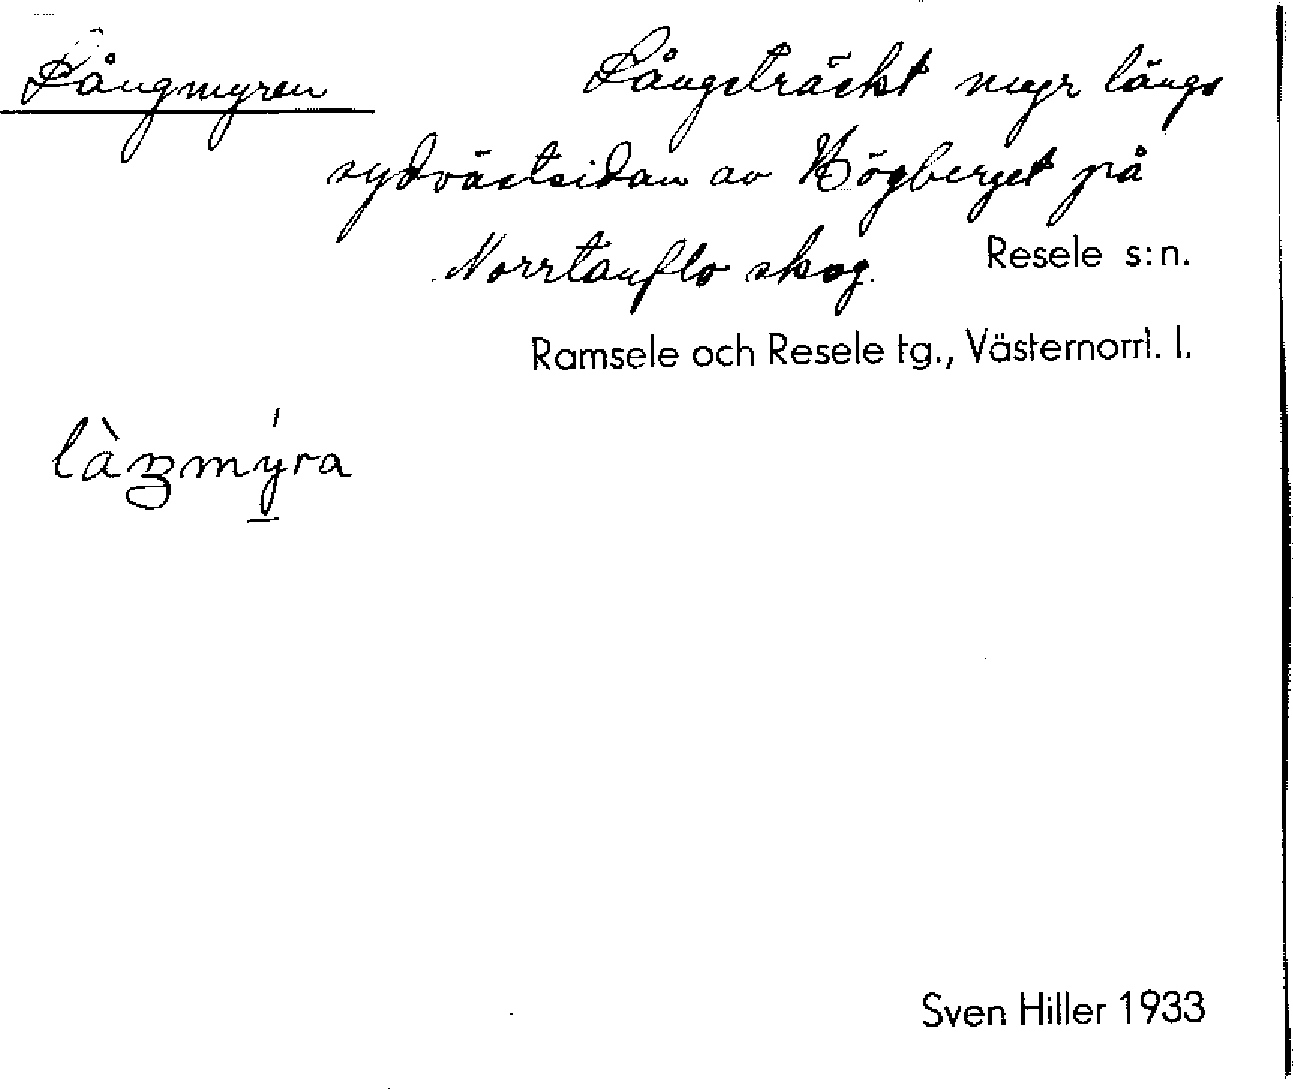 Långmyren
Långsträckt myr längs
sydvästsidan av Högberget på
Norrtanflo skog.
Resele s:n.
Ramsele och Resele tg., Västernorrl. l.
Sven Hiller 1933